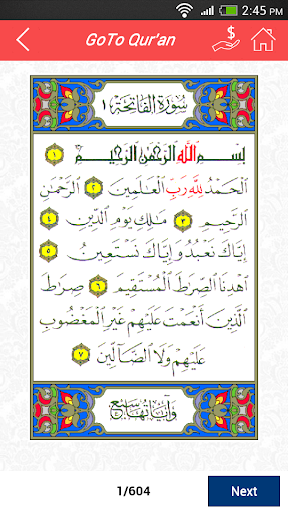 2:45 PM
GoTo Qur'an
سُورَةُ الفَاتِحَةِ ١
بِسْمِ اللَّهِ الرَّحْمَٰنِ الرَّحِيمِ ١
الْحَمْدُ لِلَّهِ رَبِّ الْعَالَمِينَ ٢ الرَّحْمَٰنِ
الرَّحِيمِ ٣ مَالِكِ يَوْمِ الدِّينِ ٤
إِيَّاكَ نَعْبُدُ وَإِيَّاكَ نَسْتَعِينُ ٥
اهْدِنَا الصِّرَاطَ الْمُسْتَقِيمَ ٦ صِرَاطَ
الَّذِينَ أَنْعَمْتَ عَلَيْهِمْ غَيْرِ الْمَغْضُوبِ
عَلَيْهِمْ وَلَا الضَّالِّينَ ٧
وَآيَاتُهَا سَبْعٌ
1/604
Next